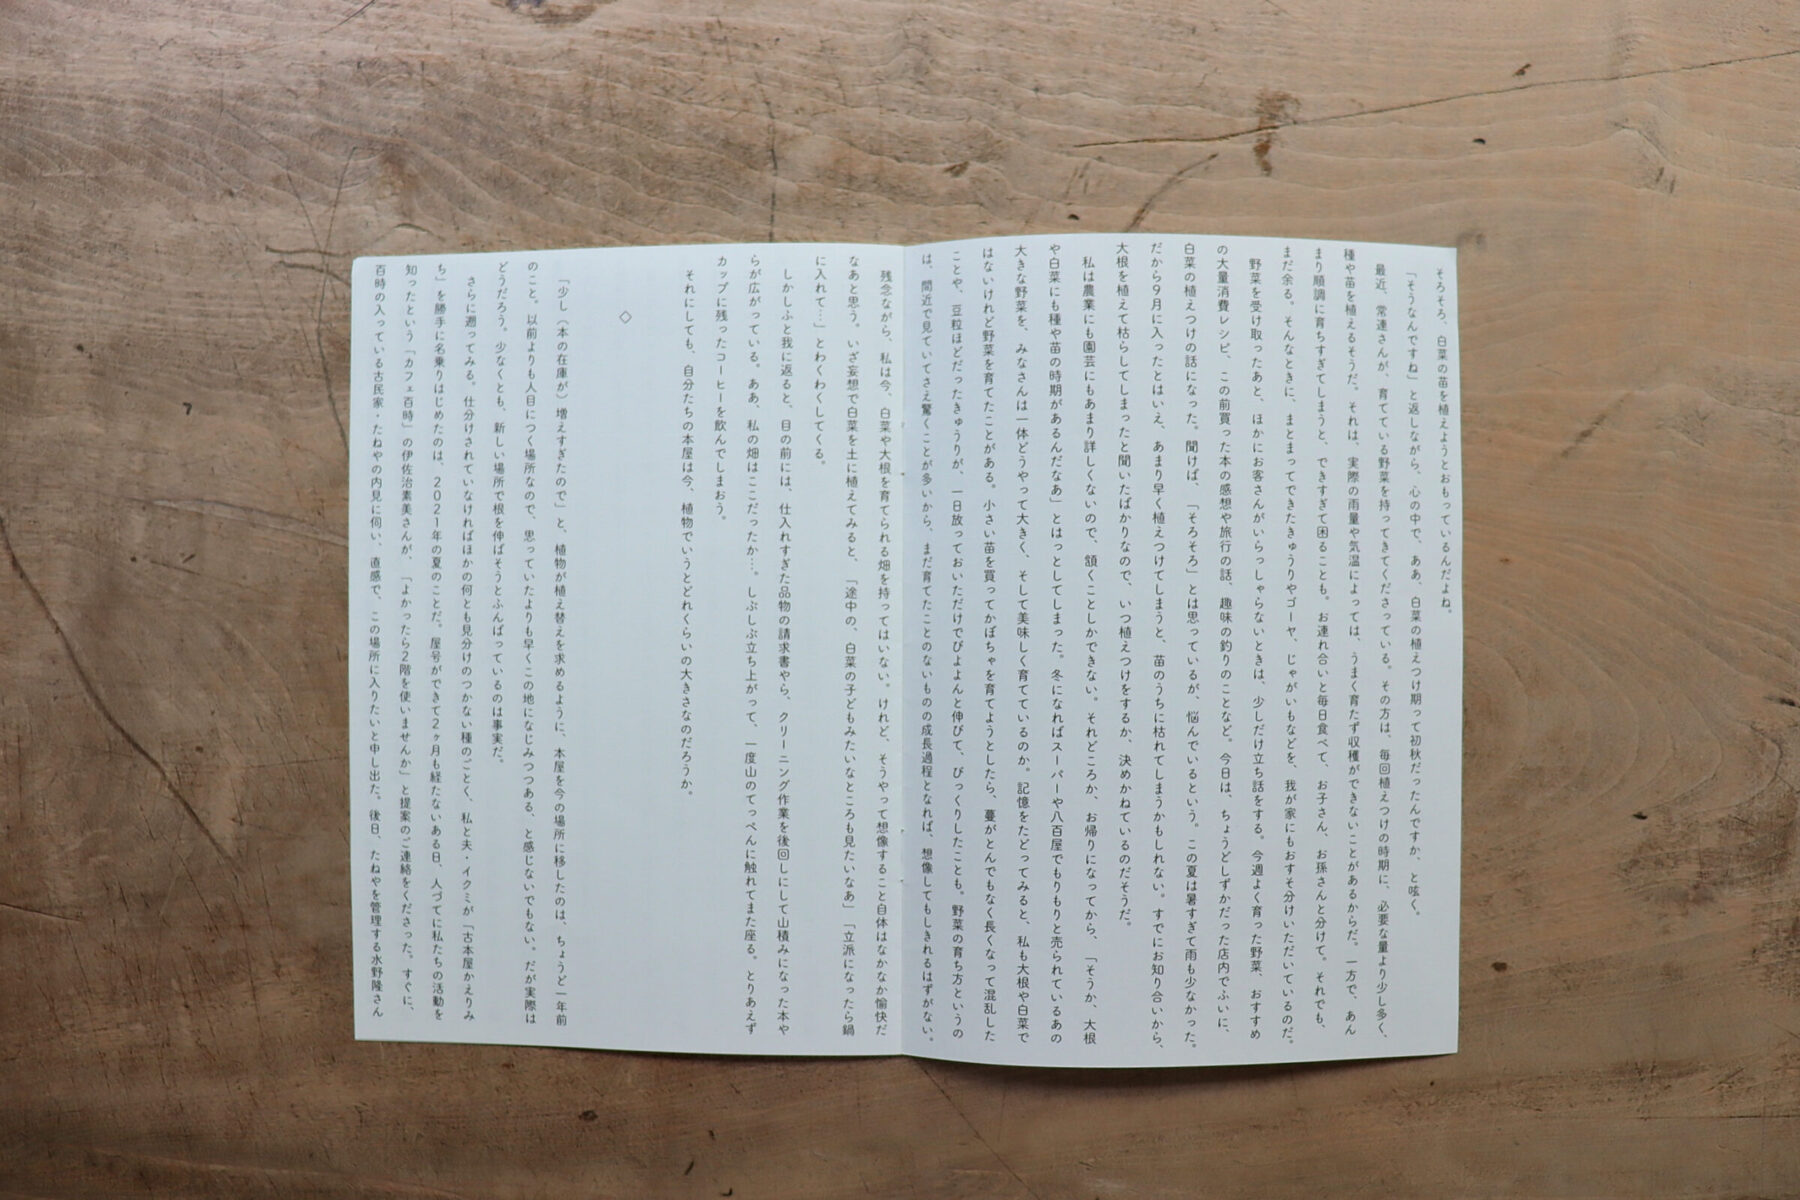 そろそろ、白菜の苗を植えようとおもっているんだよね。
「そうなんですね」と返しながら、心の中で、ああ、白菜の植えつけ期って初秋だったんですか、と呟く。
最近、常連さんが、育てている野菜を持ってきてくださっている。その方は、毎回植えつけの時期に、必要な量より少し多く、
種や苗を植えるそうだ。それは、実際の雨量や気温によっては、うまく育たず収穫ができないことがあるからだ。一方で、あん
まり順調に育ちすぎてしまうと、できすぎて困ることも。お連れ合いと毎日食べて、お子さん、お孫さんと分けて、それでも、
まだ余る。そんなときに、まとまってできたきゅうりやゴーヤ、じゃがいもなどを、我が家にもおすそ分けいただいているのだ。
野菜を受け取ったあと、ほかにお客さんがいらっしゃらないときは、少しだけ立ち話をする。今週よく育った野菜、おすすめ
の大量消費レシピ、この前買った本の感想や旅行の話、趣味の釣りのことなど。今日は、ちょうどしずかだった店内でふいに、
白菜の植えつけの話になった。聞けば、「そろそろ」とは思っているが、悩んでいるという。この夏は暑すぎて雨も少なかった。
だから9月に入ったとはいえ、あまり早く植えつけてしまうと、苗のうちに枯れてしまうかもしれない。すでにお知り合いから、
大根を植えて枯らしてしまったと聞いたばかりなので、いつ植えつけをするか、決めかねているのだそうだ。
私は農業にも園芸にもあまり詳しくないので、頷くことしかできない。それどころか、お帰りになってから、「そうか、大根
や白菜にも種や苗の時期があるんだなあ」とはっとしてしまった。冬になればスーパーや八百屋でもりもりと売られているあの
大きな野菜を、みなさんは一体どうやって大きく、そして美味しく育てているのか。記憶をたどってみると、私も大根や白菜で
はないけれど野菜を育てたことがある。小さい苗を買ってかぼちゃを育てようとしたら、蔓がとんでもなく長くなって混乱した
ことや、豆粒ほどだったきゅうりが、一日放っておいただけでぴょんと伸びて、びっくりしたことも。野菜の育ち方というの
は、間近で見ていてさえ驚くことが多いから、まだ育てたことのないものの成長過程となれば、想像してもしきれるはずがない。
残念ながら、私は今、白菜や大根を育てられる畑を持ってはいない。けれど、そうやって想像すること自体はなかなか愉快だ
なあと思う。いざ妄想で白菜を土に植えてみると、「途中の、白菜の子どもみたいなところも見たいなあ」「立派になったら鍋
に入れて…」とわくわくしてくる。
しかしふと我に返ると、目の前には、仕入れすぎた品物の請求書やら、クリーニング作業を後回しにして山積みになった本や
らが広がっている。ああ、私の畑はここだったか…。しぶしぶ立ち上がって、一度山のてっぺんに触れてまた座る。とりあえず
カップに残ったコーヒーを飲んでしまおう。
それにしても、自分たちの本屋は今、植物でいうとどれくらいの大きさなのだろうか。
◇
「少し（本の在庫が）増えすぎたので」と、植物が植え替えを求めるように、本屋を今の場所に移したのは、ちょうど一年前
のこと。以前よりも人目につく場所なので、思っていたよりも早くこの地になじみつつある、と感じないでもない。だが実際は
どうだろう。少なくとも、新しい場所で根を伸ばそうとふんばっているのは事実だ。
さらに遡ってみる。仕分けされていなければほかの何とも見分けのつかない種のごとく、私と夫・イクミが「古本屋かえりみ
ち」を勝手に名乗りはじめたのは、2021年の夏のことだ。屋号ができて2ヶ月も経たないある日、人づてに私たちの活動を
知ったという「カフェ百時」の伊佐治素美さんが、「よかったら2階を使いませんか」と提案のご連絡をくださった。すぐに、
百時の入っている古民家・たねやの内見に伺い、直感で、この場所に入りたいと申し出た。後日、たねやを管理する水野隆さん